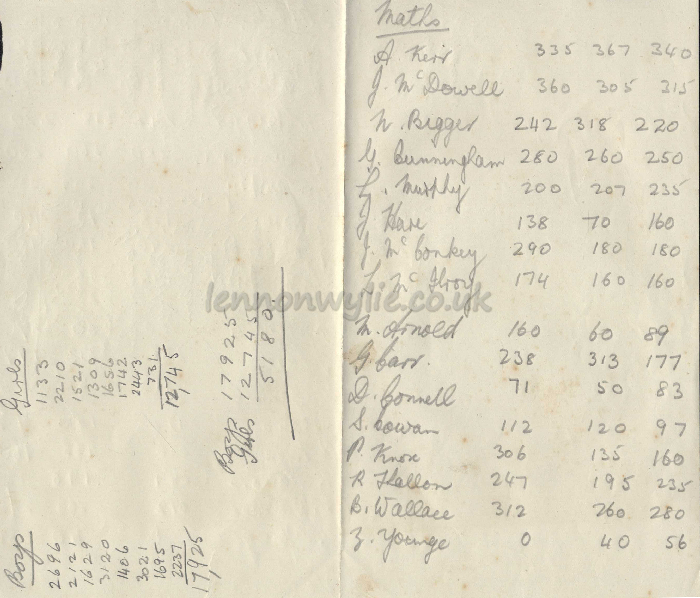 Boys
2696
2121
1629
3120
1406
3021
1695
2237
17,925
Girls
1133
2210
1521
1309
1656
1742
2443
731
12,745
Boys 17925
Girls 12745
5180
Maths
A. Kerr 335 367 340
J. McDowell 360 305 315
N. Bigger 242 318 220
G. Bunningham 280 260 250
L. Murphy 200 207 235
J. Hare 138 70 160
J. McConkey 290 180 180
L. McIlroy 174 160 160
M. Arnold 160 60 89
G. Carr. 238 313 177
D. Connell 71 50 83
S. Cowan 112 120 97
P. Knox 306 135 160
R. Hallon 247 195 235
B. Wallace 312 260 280
Z. Younge 0 40 56
lennonwylie.co.uk